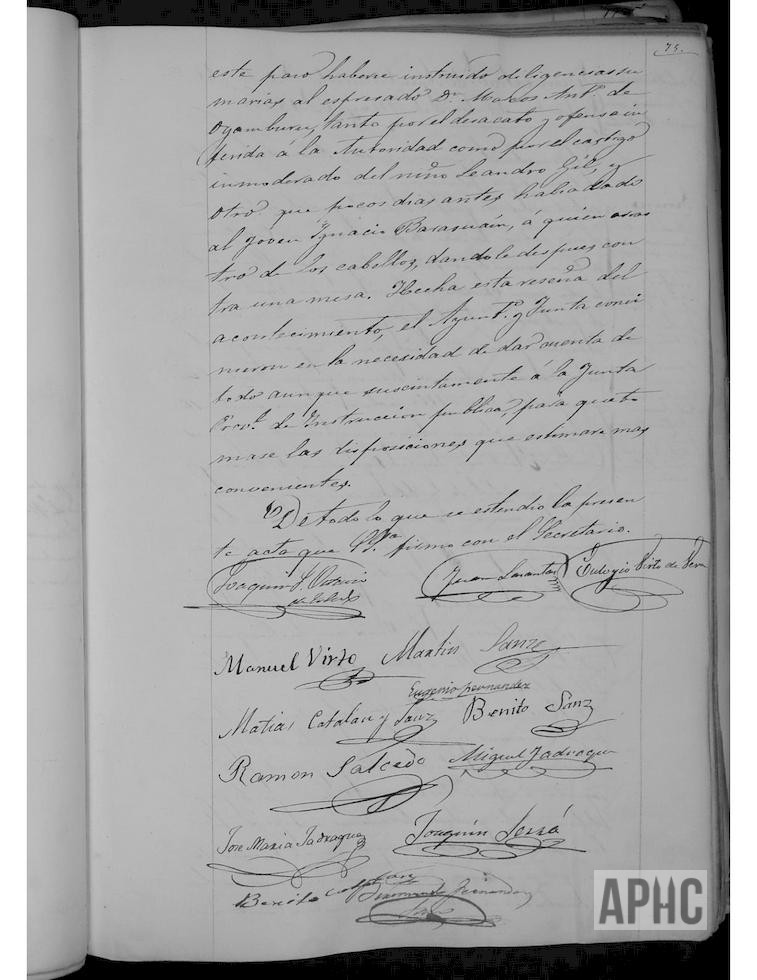 75.
este para haberse instruido diligencias su
marias al espresado Dn. Marcos Antº. de
Oyamburu, tanto por el desacato y ofensa in
ferida á la Autoridad como por el castigo
inmoderado del niño Leandro Gil, y
otro que pocos dias antes habia dado
al joven Ignacio Barasuáin, á quien arras
tró de los cabellos, dandole despues con
tra una mesa. Hecha esta reseña del
acontecimiento, el Ayuntº. y Junta convi
nieron en la necesidad de dar cuenta de
todo aunque suscintamente á la Junta
Provl. de Instruccion publica, para que to
mase las disposiciones que estimara mas
convenientes.
De todo lo que se estendio la presen
te acta que firmo con el Secretario.
Joaquin
Juan Eulogio Virto de Vera
Manuel Virto Martin Sanz
Eugenio Fernandez
Matias Catalan y Sanz Benito Sanz
Ramon Salcedo Miguel Jadraque
Jose Maria Jadraque Joaquín
Benito Catalan
Fernandez
APHC